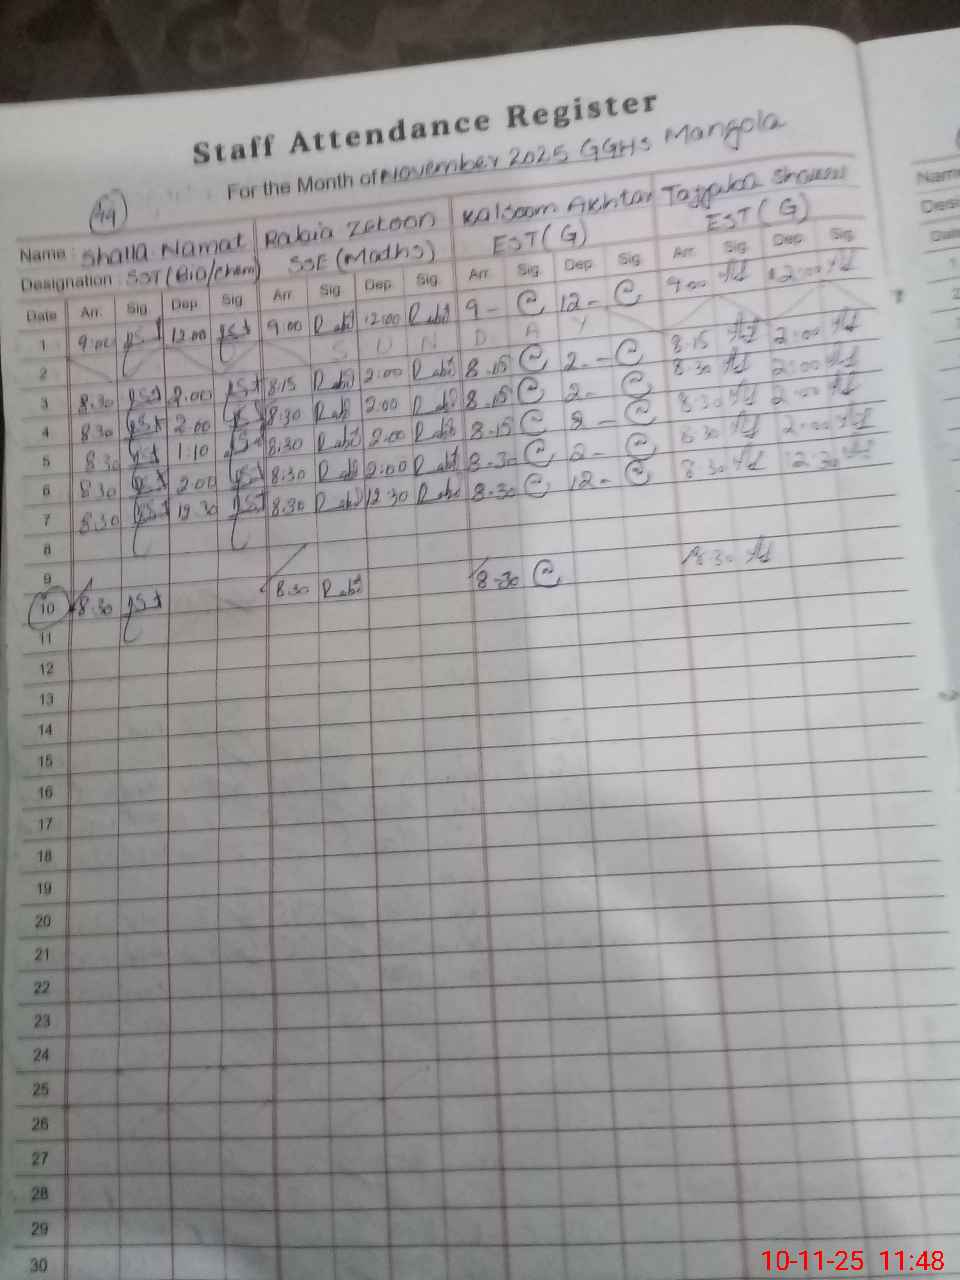 Staff Attendance Register
For the Month of November 2025 GGHS Mangola
49
Name : Shaila Namat Rabia Zetoon Kalsoom Akhtar
Designation : SST (Bio/Chem) SSE (Maths) EST (G) EST (G)
Date Arr. Sig. Dep. Sig. Arr. Sig. Dep. Sig. Arr. Sig. Dep. Sig. Arr. Sig. Dep. Sig.
1 9:00 12:00 9:00 Rabi 12:00 Rabi 9- 12- 9:00
2 S U N D A Y
3 8:30 2:00 8:15 Rabi 2:00 Rabi 8.15 2- 8:15 2:00
4 8:30 2:00 8:30 Rabi 2:00 Rabi 8.15 2- 8:30 2:00
5 8:30 1:10 8:30 Rabi 2:00 Rabi 8.15 2- 8:30 2:00
6 8:30 2:00 8:30 Rabi 2:00 Rabi 8.30 2- 8:30 2:00
7 8:30 12:30 8:30 Rabi 12:30 Rabi 8.30 12- 8:30 12:30
8
9
10 8:30 8:30 Rabi 8-30 8:30
11
12
13
14
15
16
17
18
19
20
21
22
23
24
25
26
27
28
29
30
Name
10-11-25 11:48